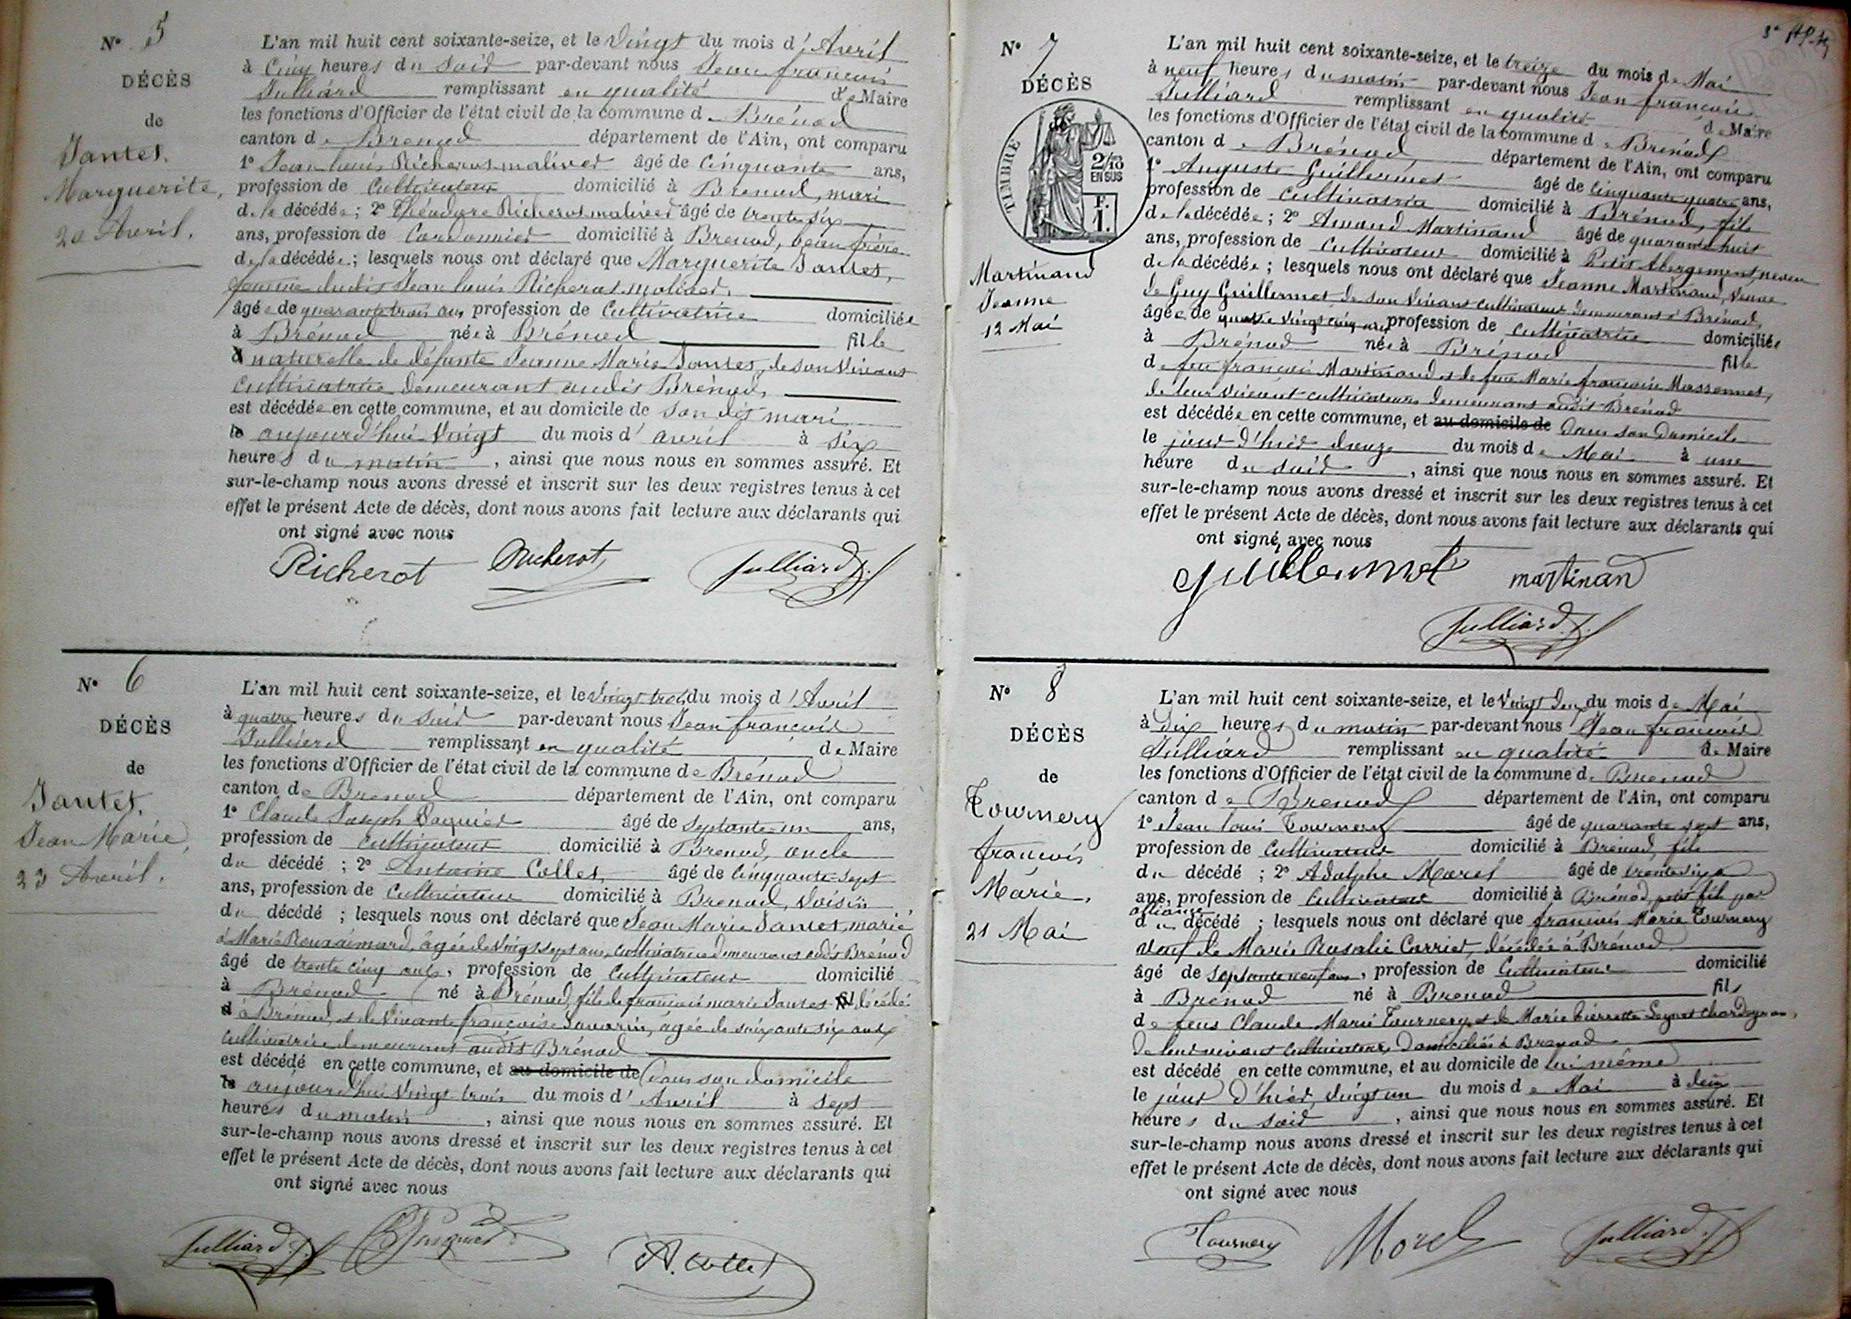 N° 5
DÉCÈS
de
Jantet.
Marguerite,
20 Avril.
L'an mil huit cent soixante-seize, et le vingt du mois d'Avril
à cinq heures du soir par-devant nous Jean françois
Julliard remplissant en qualité de Maire
les fonctions d'Officier de l'état civil de la commune de Brénod
canton de Brénod département de l'Ain, ont comparu
1° Jean Louis Richerot malivert âgé de cinquante ans,
profession de cultivateur domicilié à Brénod, mari
de la décédée; 2° Théodore Richerot malivert âgé de trente six
ans, profession de Cordonnier domicilié à Brénod, beau frère
de la décédée; lesquels nous ont déclaré que Marguerite Jantet,
femme dudit Jean Louis Richerot malivert,
âgée de quarante trois ans, profession de Cultivatrice domiciliée
à Brénod née à Brénod fille
naturelle de défunte Jeanne Marie Jantet, de son vivant
cultivatrice demeurant audit Brénod,
est décédée en cette commune, et au domicile de son dit mari
le aujourd'hui vingt du mois d'avril à six
heures du matin, ainsi que nous nous en sommes assuré. Et
sur-le-champ nous avons dressé et inscrit sur les deux registres tenus à cet
effet le présent Acte de décès, dont nous avons fait lecture aux déclarants qui
ont signé avec nous
Richerot Richerot Julliard f.
N° 6
DÉCÈS
de
Jantet.
Jean Marie,
23 Avril.
L'an mil huit cent soixante-seize, et le vingt trois du mois d'Avril
à quatre heures du soir par-devant nous Jean françois
Julliard remplissant en qualité de Maire
les fonctions d'Officier de l'état civil de la commune de Brénod
canton de Brénod département de l'Ain, ont comparu
1° Claude Joseph âgé de septante un ans,
profession de cultivateur domicilié à Brénod, oncle
du décédé; 2° Antoine Collet, âgé de cinquante-sept
ans, profession de cultivateur domicilié à Brénod, voisin
du décédé; lesquels nous ont déclaré que Jean Marie Jantet, marié
à Marie âgée de vingt sept ans, cultivatrice demeurant audit Brénod
âgé de trente cinq ans, profession de Cultivateur domicilié
à Brénod né à Brénod, fils de françois marie Jantet décédé
à Brénod, et de vivante françoise Savarin, âgée de soixante six ans
cultivatrice demeurant audit Brénod
est décédé en cette commune, et au domicile de dans son domicile
le aujourd'hui vingt trois du mois d'Avril à sept
heures du matin, ainsi que nous nous en sommes assuré. Et
sur-le-champ nous avons dressé et inscrit sur les deux registres tenus à cet
effet le présent Acte de décès, dont nous avons fait lecture aux déclarants qui
ont signé avec nous
Julliard f. A. Collet
N° 7
DÉCÈS
de
TIMBRE
2/10
EN SUS
F.
1.
Martinand
Jeanne
12 Mai
L'an mil huit cent soixante-seize, et le treize du mois de Mai
à neuf heures du matin par-devant nous Jean françois
Julliard remplissant en qualité de Maire
les fonctions d'Officier de l'état civil de la commune de Brénod
canton de Brénod département de l'Ain, ont comparu
1° Auguste Guillermet âgé de cinquante quatre ans,
profession de cultivateur domicilié à Brénod, fils
de la décédée; 2° Amand Martinand âgé de quarante huit
ans, profession de cultivateur domicilié à Petit Abergement, neveu
de la décédée; lesquels nous ont déclaré que Jeanne Martinand, veuve
de Guy Guillermet de son vivant cultivateur demeurant à Brénod,
âgée de quatre vingt cinq ans, profession de cultivatrice domiciliée
à Brénod née à Brénod fille
de feu françois Martinand et de feue Marie françoise Massonnet,
de leur vivant cultivateurs demeurans audit Brénod
est décédée en cette commune, et au domicile de dans son domicile
le jour d'hier douze du mois de Mai à une
heure du soir, ainsi que nous nous en sommes assuré. Et
sur-le-champ nous avons dressé et inscrit sur les deux registres tenus à cet
effet le présent Acte de décès, dont nous avons fait lecture aux déclarants qui
ont signé avec nous
Guillermet martinand
Julliard f.
N° 8
DÉCÈS
de
Tournery
françois
Marie.
21 Mai
L'an mil huit cent soixante-seize, et le vingt deux du mois de Mai
à dix heures du matin par-devant nous Jean françois
Julliard remplissant en qualité de Maire
les fonctions d'Officier de l'état civil de la commune de Brénod
canton de Brénod département de l'Ain, ont comparu
1° Jean Louis Tournery âgé de quarante sept ans,
profession de cultivateur domicilié à Brénod, fils
du décédé; 2° Adolphe Morel âgé de trente six
ans, profession de Cultivateur domicilié à Brénod, petit fils par
alliance
du décédé; lesquels nous ont déclaré que françois Marie Tournery
veuf de Marie Rosalie Carrier, décédée à Brénod
âgé de septante neuf ans, profession de Cultivateur domicilié
à Brénod né à Brénod fils
de feus Claude Marie Tournery et de Marie Pierrette
de leur vivant cultivateurs domiciliés à Brénod
est décédé en cette commune, et au domicile de lui même
le jour d'hier, vingt un du mois de Mai à dix
heures du soir, ainsi que nous nous en sommes assuré. Et
sur-le-champ nous avons dressé et inscrit sur les deux registres tenus à cet
effet le présent Acte de décès, dont nous avons fait lecture aux déclarants qui
ont signé avec nous
Tournery Morel Julliard f.